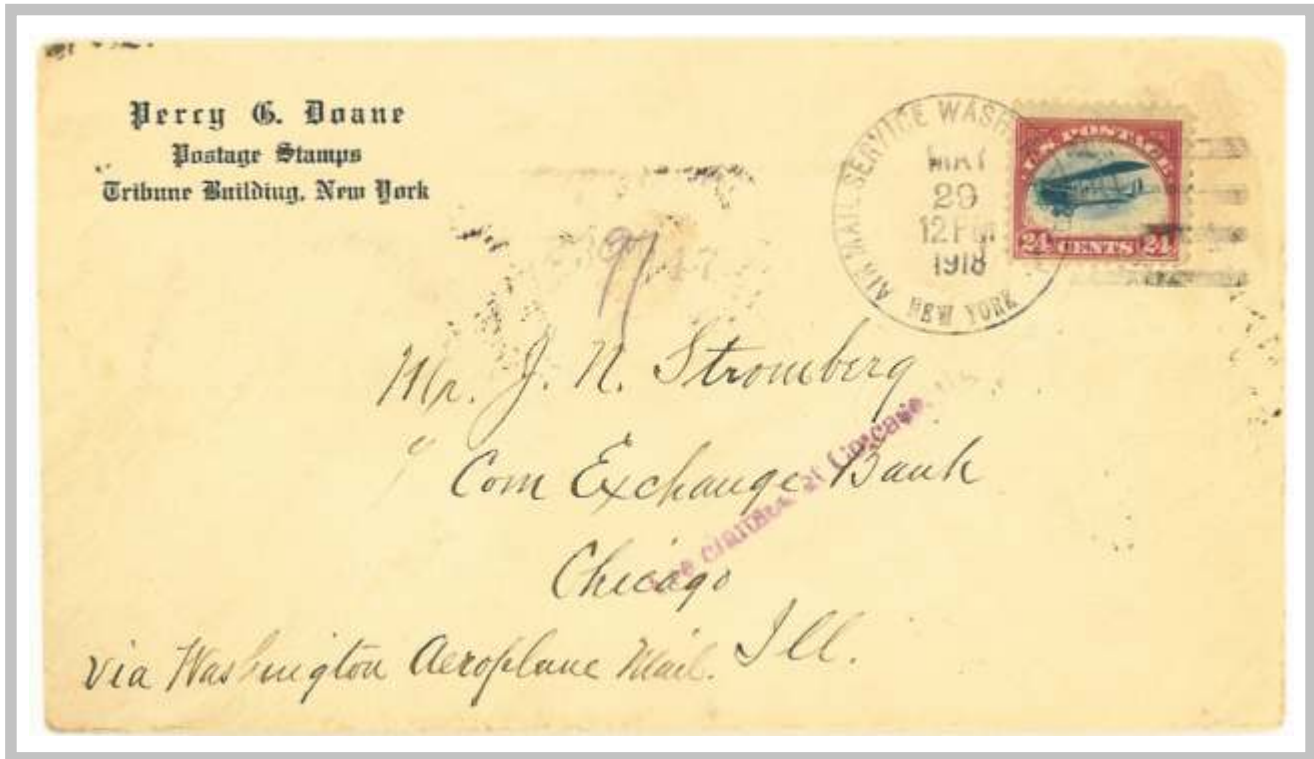 Percy G. Doane
Postage Stamps
Tribune Building, New York
AIR MAIL SERVICE WASH
MAY
29
12 PM
1918
NEW YORK
U.S. POSTAGE
24 CENTS 24
97
Mr. J. N. Stromberg
Corn Exchange Bank
Chicago
Ill.
via Washington Aeroplane Mail.
at Chicago